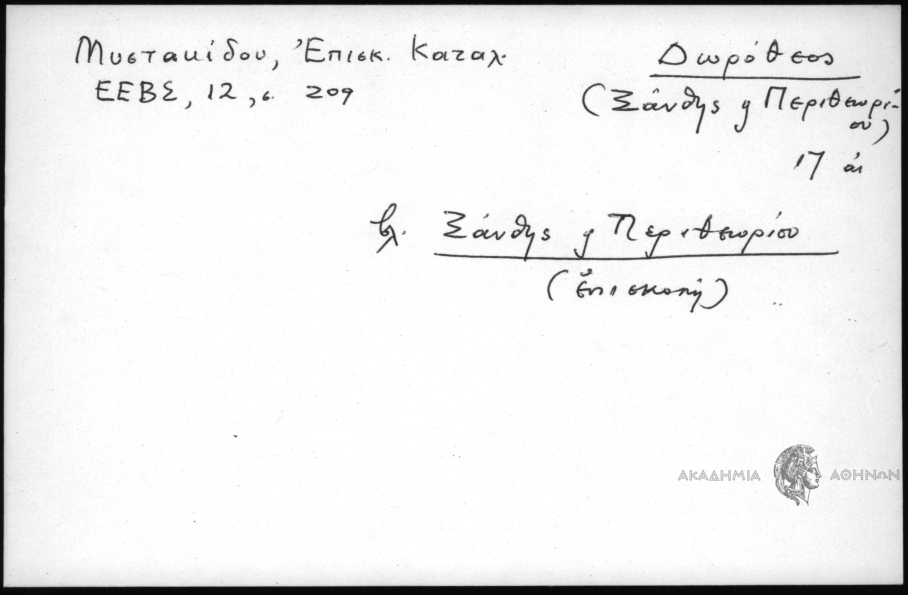 Μυστακίδου, Ἐπισκ. Καταλ.
ΕΕΒΣ, 12, σ. 209
Δωρόθεος
(Ξάνθης ἢ Περιθεωρί-
ου)
17 αἰ
βλ. Ξάνθης ἢ Περιθεωρίου
(ἐπισκοπή)
ΑΚΑΔΗΜΙΑ ΑΘΗΝΩΝ